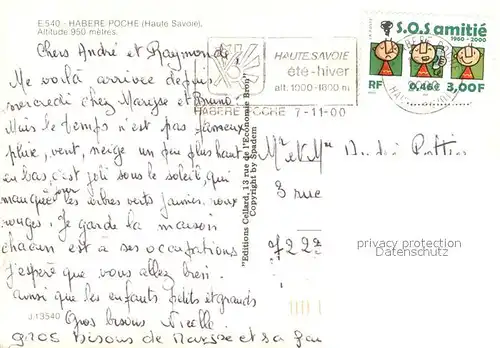 E.540 - HABERE-POCHE (Haute Savoie).
Altitude 950 mètres.
Chers André et Raymonde,
Me voilà arrivée depuis
mercredi chez Maryse et Bruno.
Mais le temps n'est pas fameux
pluie, vent, neige un peu plus haut
en bas, c'est joli sous le soleil, qui
manque. les arbres verts jaunes, roux
ce jour
rouges. Je garde la maison
chacun est à ses occupations
J'espère que vous allez bien.
ainsi que les enfants petits et grands
J.13540 Gros bisous
gros bisous de Maryse et sa
"Editions Cellard, 13 rue de l'Economie Bron"
Copyright by Spadem
HAUTE-SAVOIE
été-hiver
alt. 1000-1600 m
HABERE POCHE 7-11-00
S.O.S amitié
1960-2000
RF 0,46€ 3,00F
Mr et Mme André
3 rue
722
privacy protection
Datenschutz